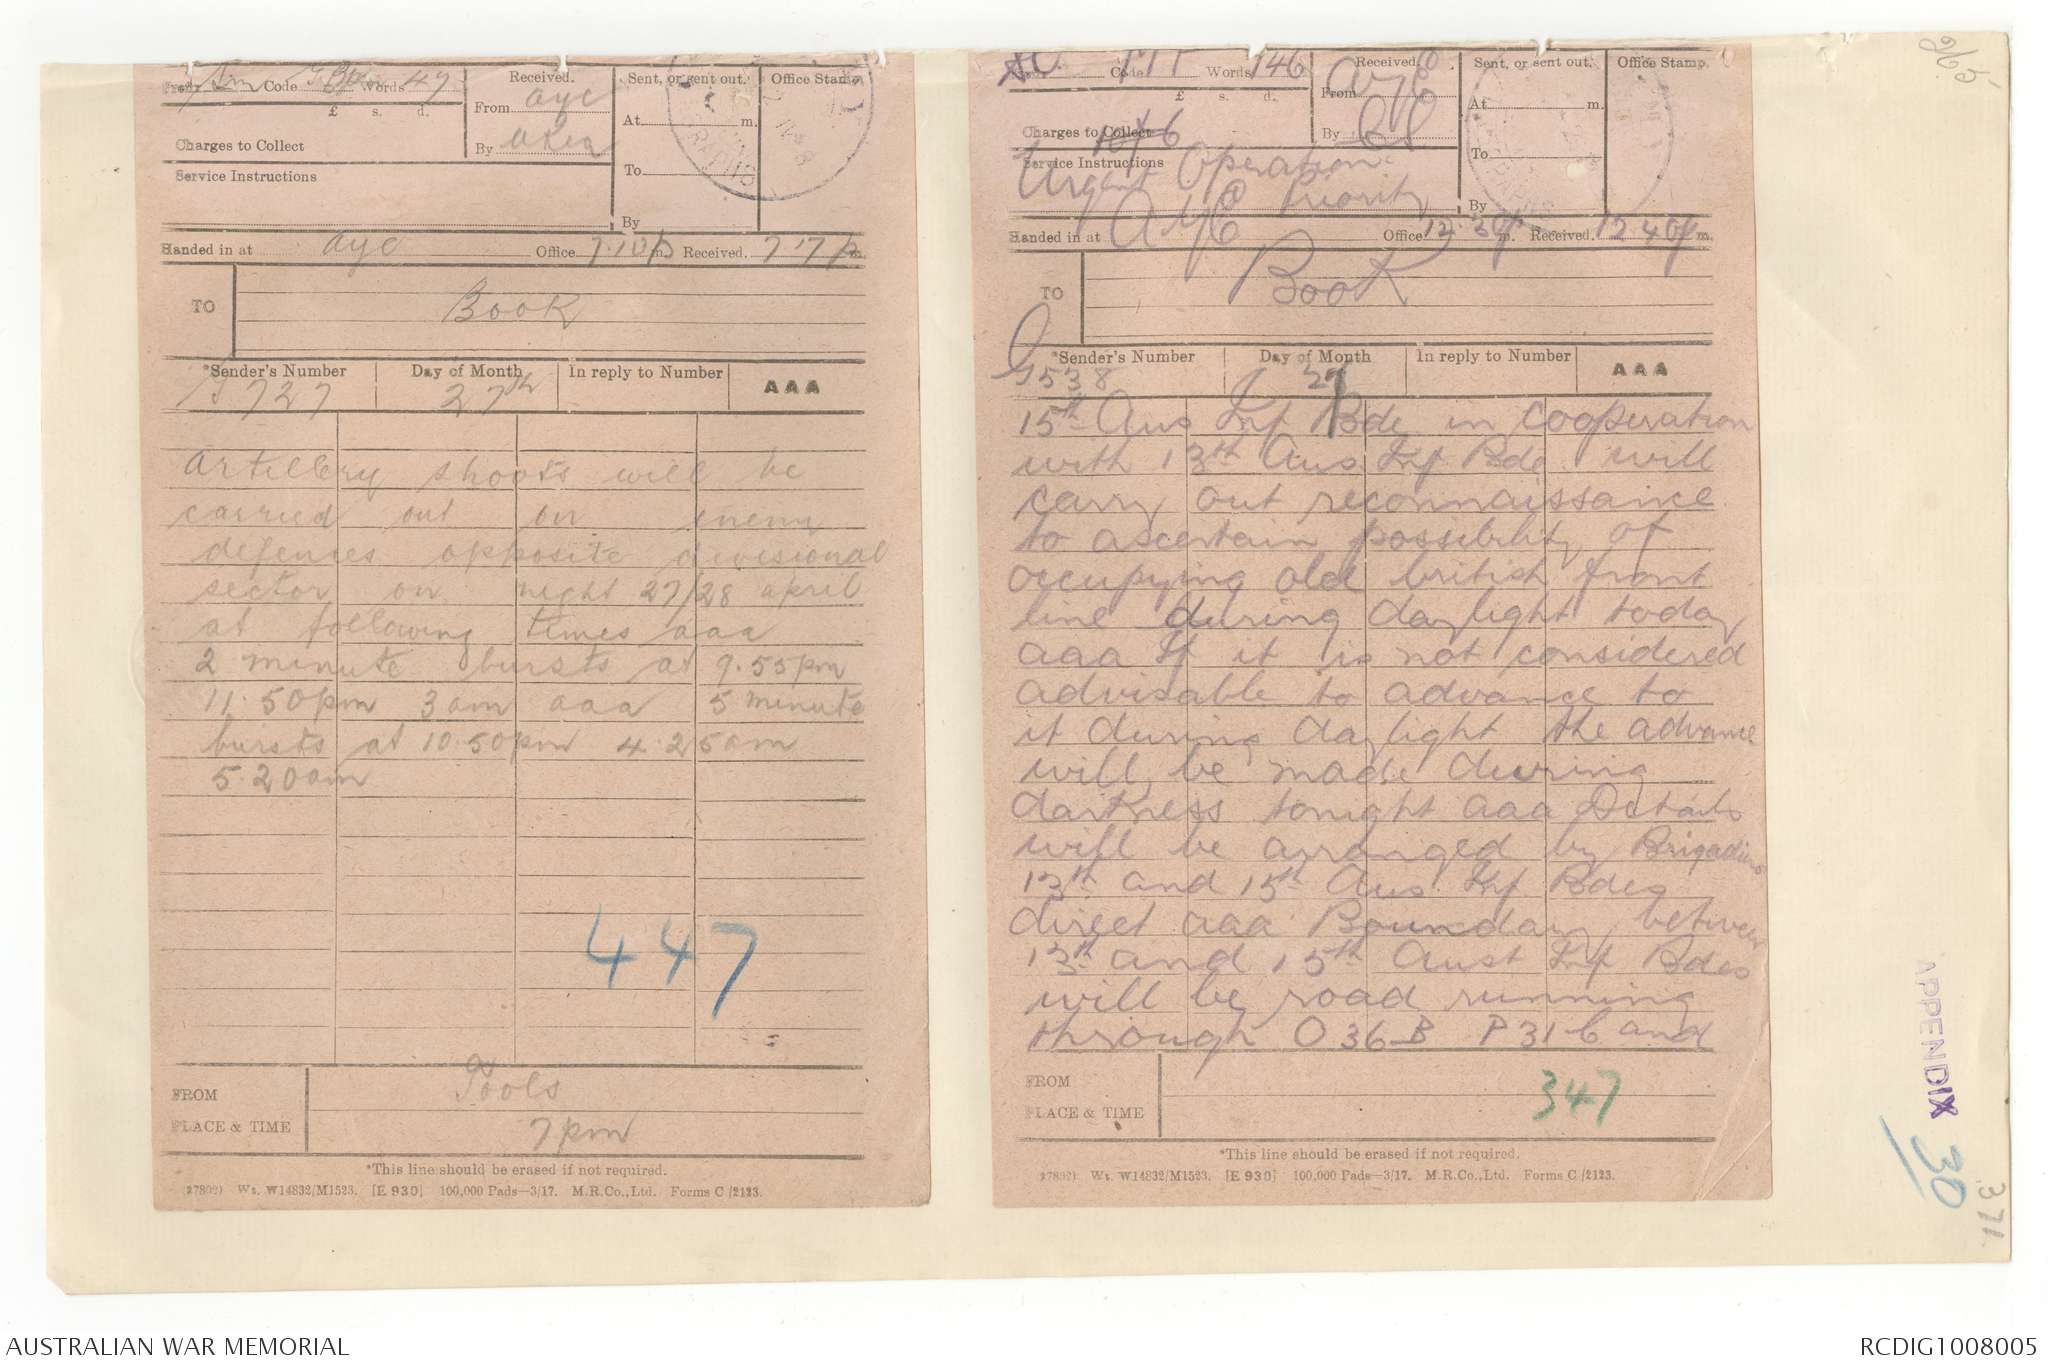 Prefix Sm Code GBp Words 47
£ s. d.
Charges to Collect
Service Instructions
Received.
From ayc
By
Sent, or sent out.
At m.
To
By
Office Stamp.
Handed in at ayc Office 7.10p m. Received. 7.17p m.
TO Book
*Sender's Number Day of Month In reply to Number AAA
G727 27th
artillery shoots will be
carried out on enemy
defences opposite divisional
sector on night 27/28 april
at following times aaa
2 minute bursts at 9.55pm
11.50pm 3am aaa 5 minute
bursts at 10.50pm 4.25am
5.20am
447
FROM Tools
PLACE & TIME 7pm
*This line should be erased if not required.
(27802) Wt. W14832/M1523. [E 930] 100,000 Pads—3/17. M.R.Co.,Ltd. Forms C/2123.
Code Words 146
£ s. d.
Charges to Collect
Service Instructions
Urgent Operation
Priority
Received.
From Ayc
By
Sent, or sent out.
At m.
To
By
Office Stamp.
Handed in at AyC Office m. Received. m.
TO Book
*Sender's Number Day of Month In reply to Number AAA
G538
15th Aus Inf Bde in cooperation
with 13th Aus Inf Bde will
carry out reconnaissance
to ascertain possibility of
occupying old british front
line during daylight today
aaa If it is not considered
advisable to advance to
it during daylight the advance
will be made during
darkness tonight aaa Details
will be arranged by Brigadiers
13th and 15th Aus Inf Bdes
direct aaa Boundary between
13th and 15th Aust Inf Bdes
will be road running
through O 36 B P 31 b and
FROM
PLACE & TIME
347
*This line should be erased if not required.
(27802) Wt. W14832/M1523. [E 930] 100,000 Pads—3/17. M.R.Co.,Ltd. Forms C/2123.
APPENDIX
30
371
AUSTRALIAN WAR MEMORIAL
RCDIG1008005